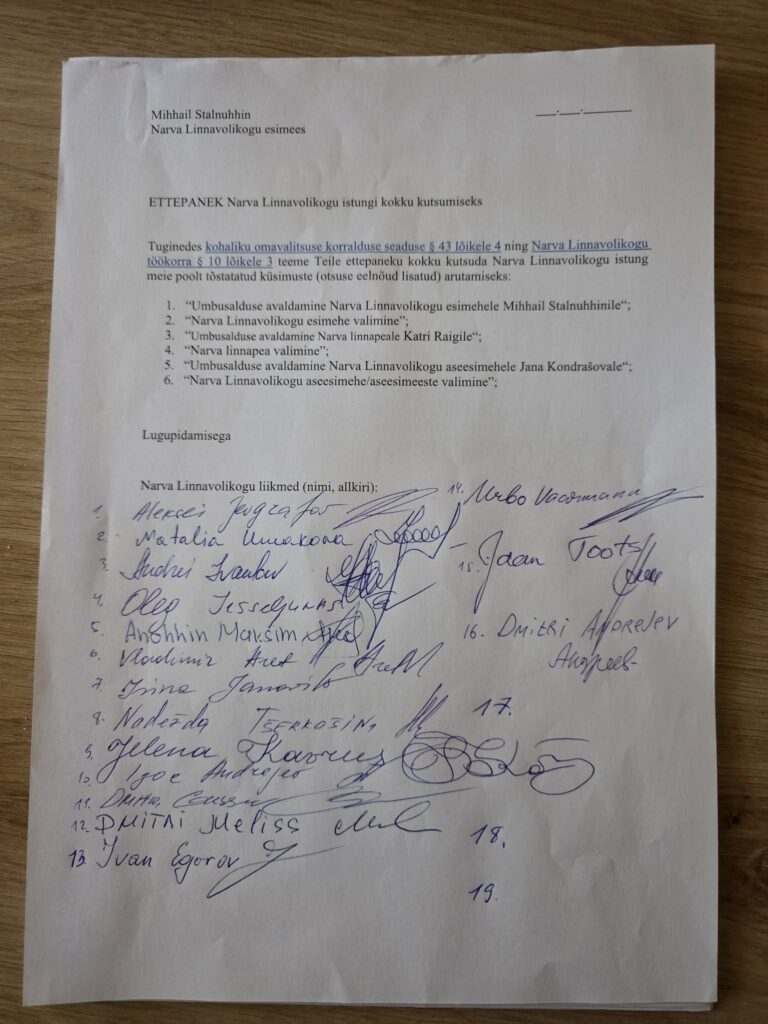 Mihhail Stalnuhhin
Narva Linnavolikogu esimees
___.___.________
ETTEPANEK Narva Linnavolikogu istungi kokku kutsumiseks
Tuginedes kohaliku omavalitsuse korralduse seaduse § 43 lõikele 4 ning Narva Linnavolikogu
töökorra § 10 lõikele 3 teeme Teile ettepaneku kokku kutsuda Narva Linnavolikogu istung
meie poolt tõstatatud küsimuste (otsuse eelnõud lisatud) arutamiseks:
1. “Umbusalduse avaldamine Narva Linnavolikogu esimehele Mihhail Stalnuhhinile“;
2. “Narva Linnavolikogu esimehe valimine”;
3. “Umbusalduse avaldamine Narva linnapeale Katri Raigile“;
4. “Narva linnapea valimine”;
5. “Umbusalduse avaldamine Narva Linnavolikogu aseesimehele Jana Kondrašovale“;
6. “Narva Linnavolikogu aseesimehe/aseesimeeste valimine”;
Lugupidamisega
Narva Linnavolikogu liikmed (nimi, allkiri):
1. Aleksei Jevgrafov
2. Natalia Umarova
3. Andrei Ivanov
4. Oleg
5. Anohhin Maksim
6. Vladimir Aret
7. Irina Janovitš
8. Nadežda
9. Jelena
10. Igor Andrejev
11. Dmitri
12. DMITRI Meliss
13. Ivan Egorov
14. Urbo Vaarmann
15. Jaan Toots
16. DMITRI ANDREJEV
Андреев
17.
18.
19.